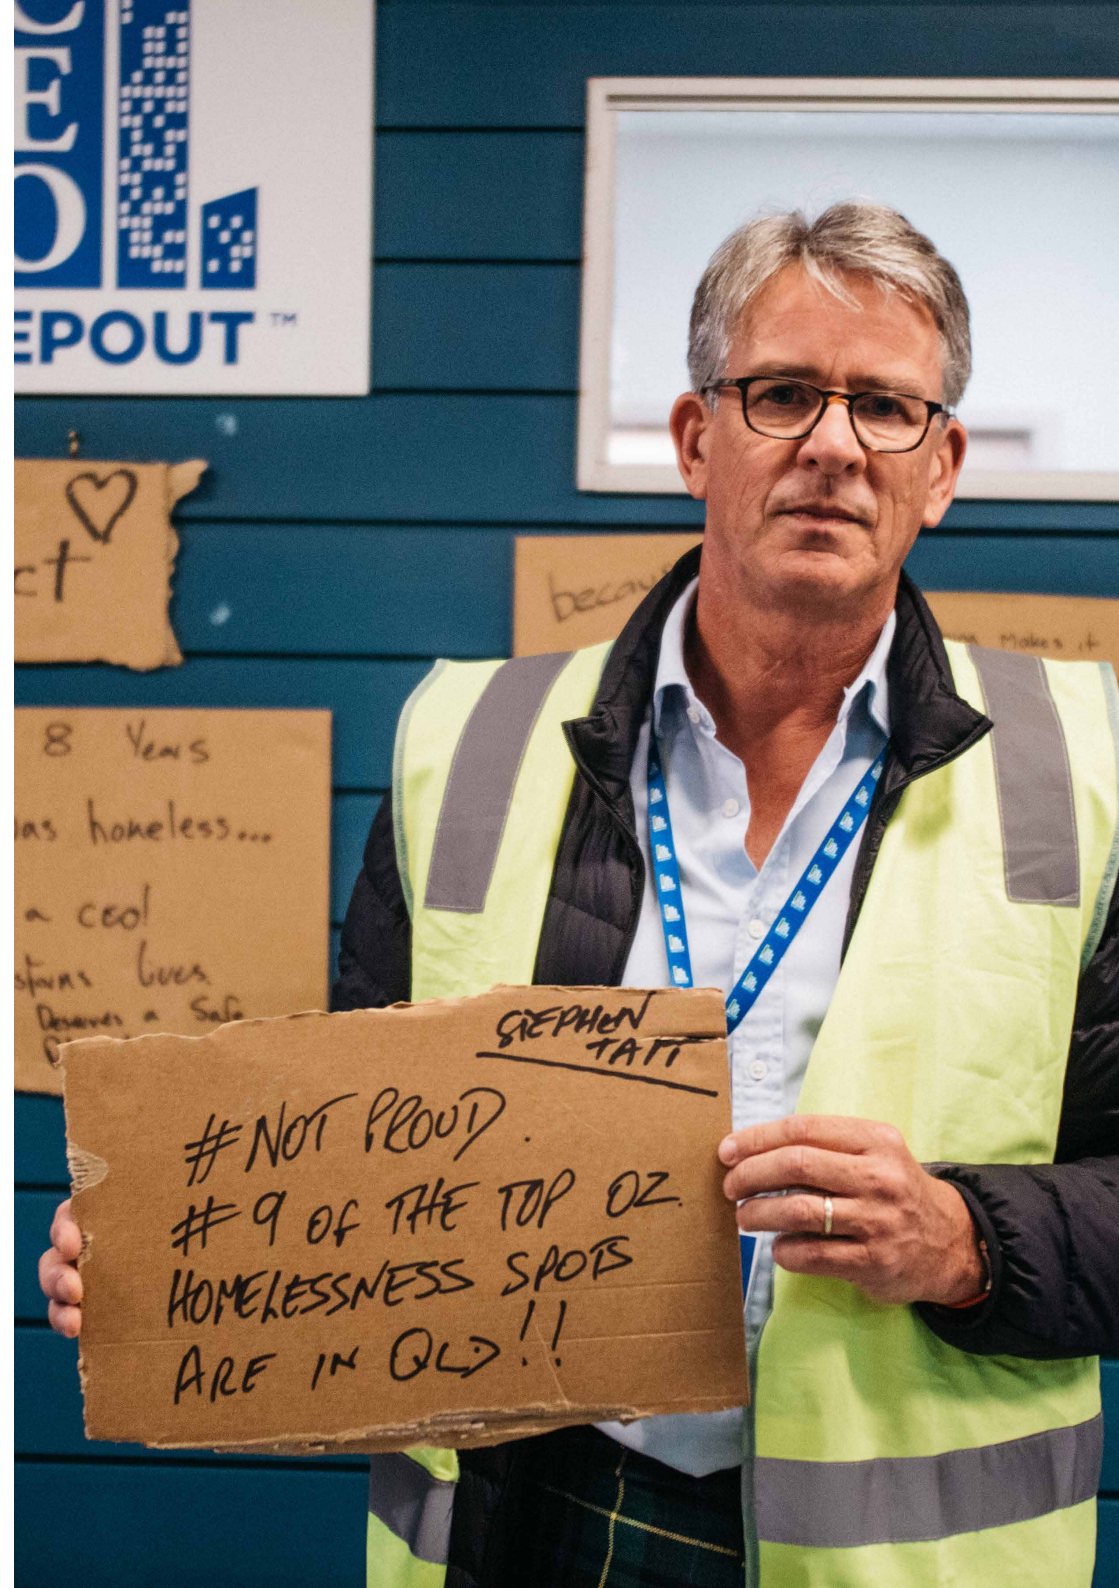 C
E
O
EPOUT ™
ct
becau
makes it
8 Years
as homeless...
a ceo!
sforms lives
Deserves a Safe
STEPHEN
TAIT
#NOT PROUD.
#9 OF THE TOP OZ.
HOMELESSNESS SPOTS
ARE IN QLD!!